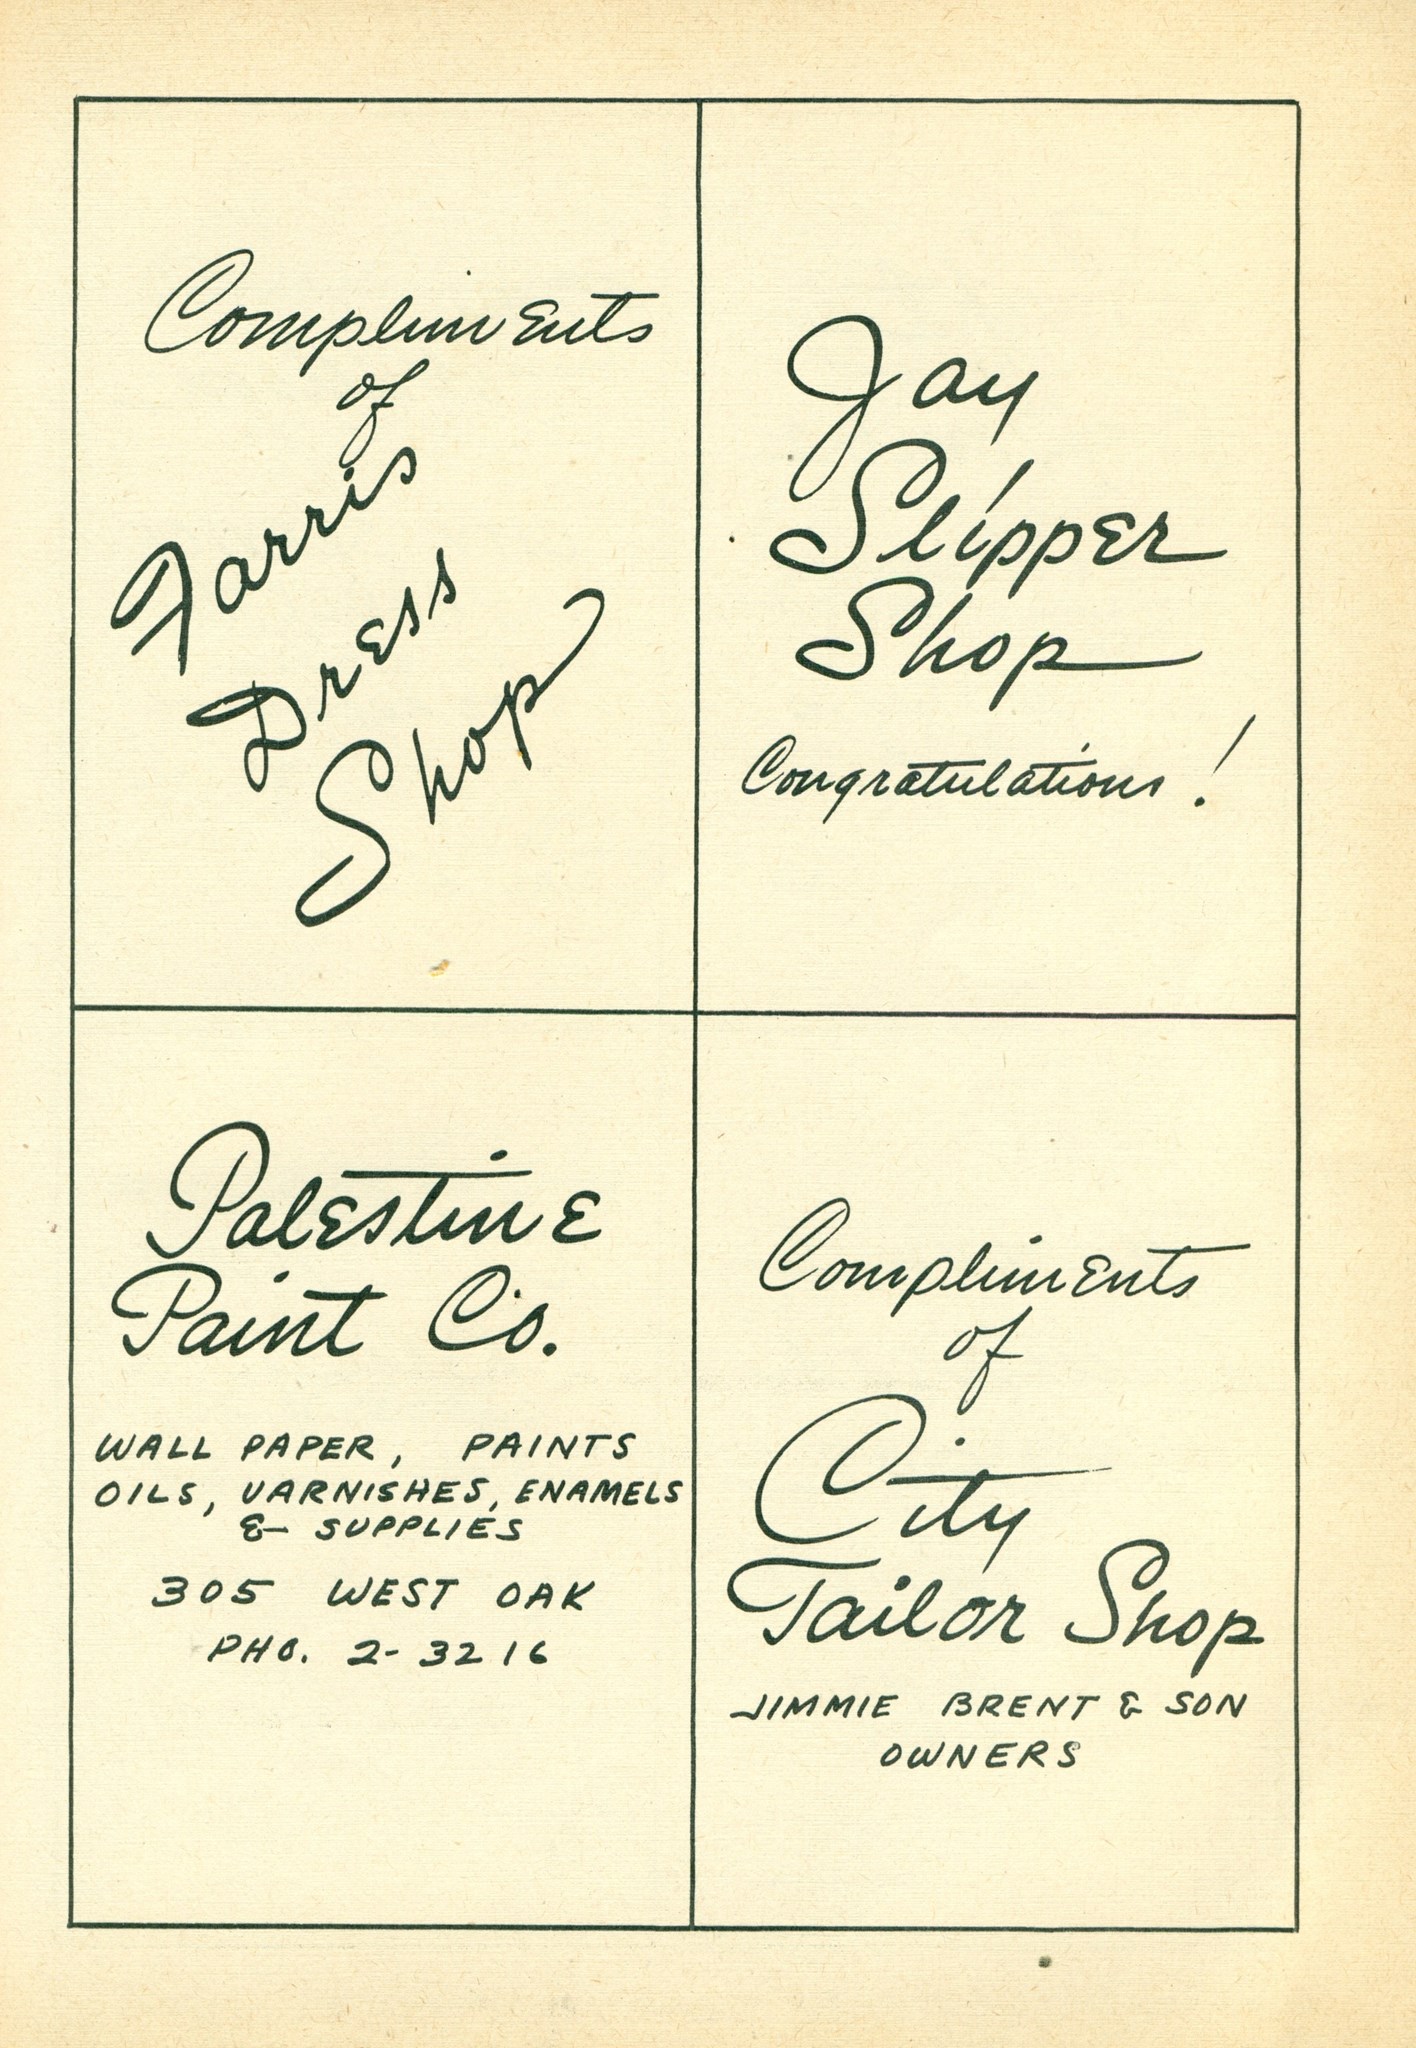 Compliments
of
Farris
Dress
Shop
Jay
Slipper
Shop
Congratulations!
Palestine
Paint Co.
WALL PAPER, PAINTS
OILS, VARNISHES, ENAMELS
& SUPPLIES
305 WEST OAK
PHO. 2-3216
Compliments
of
City
Tailor Shop
JIMMIE BRENT & SON
OWNERS